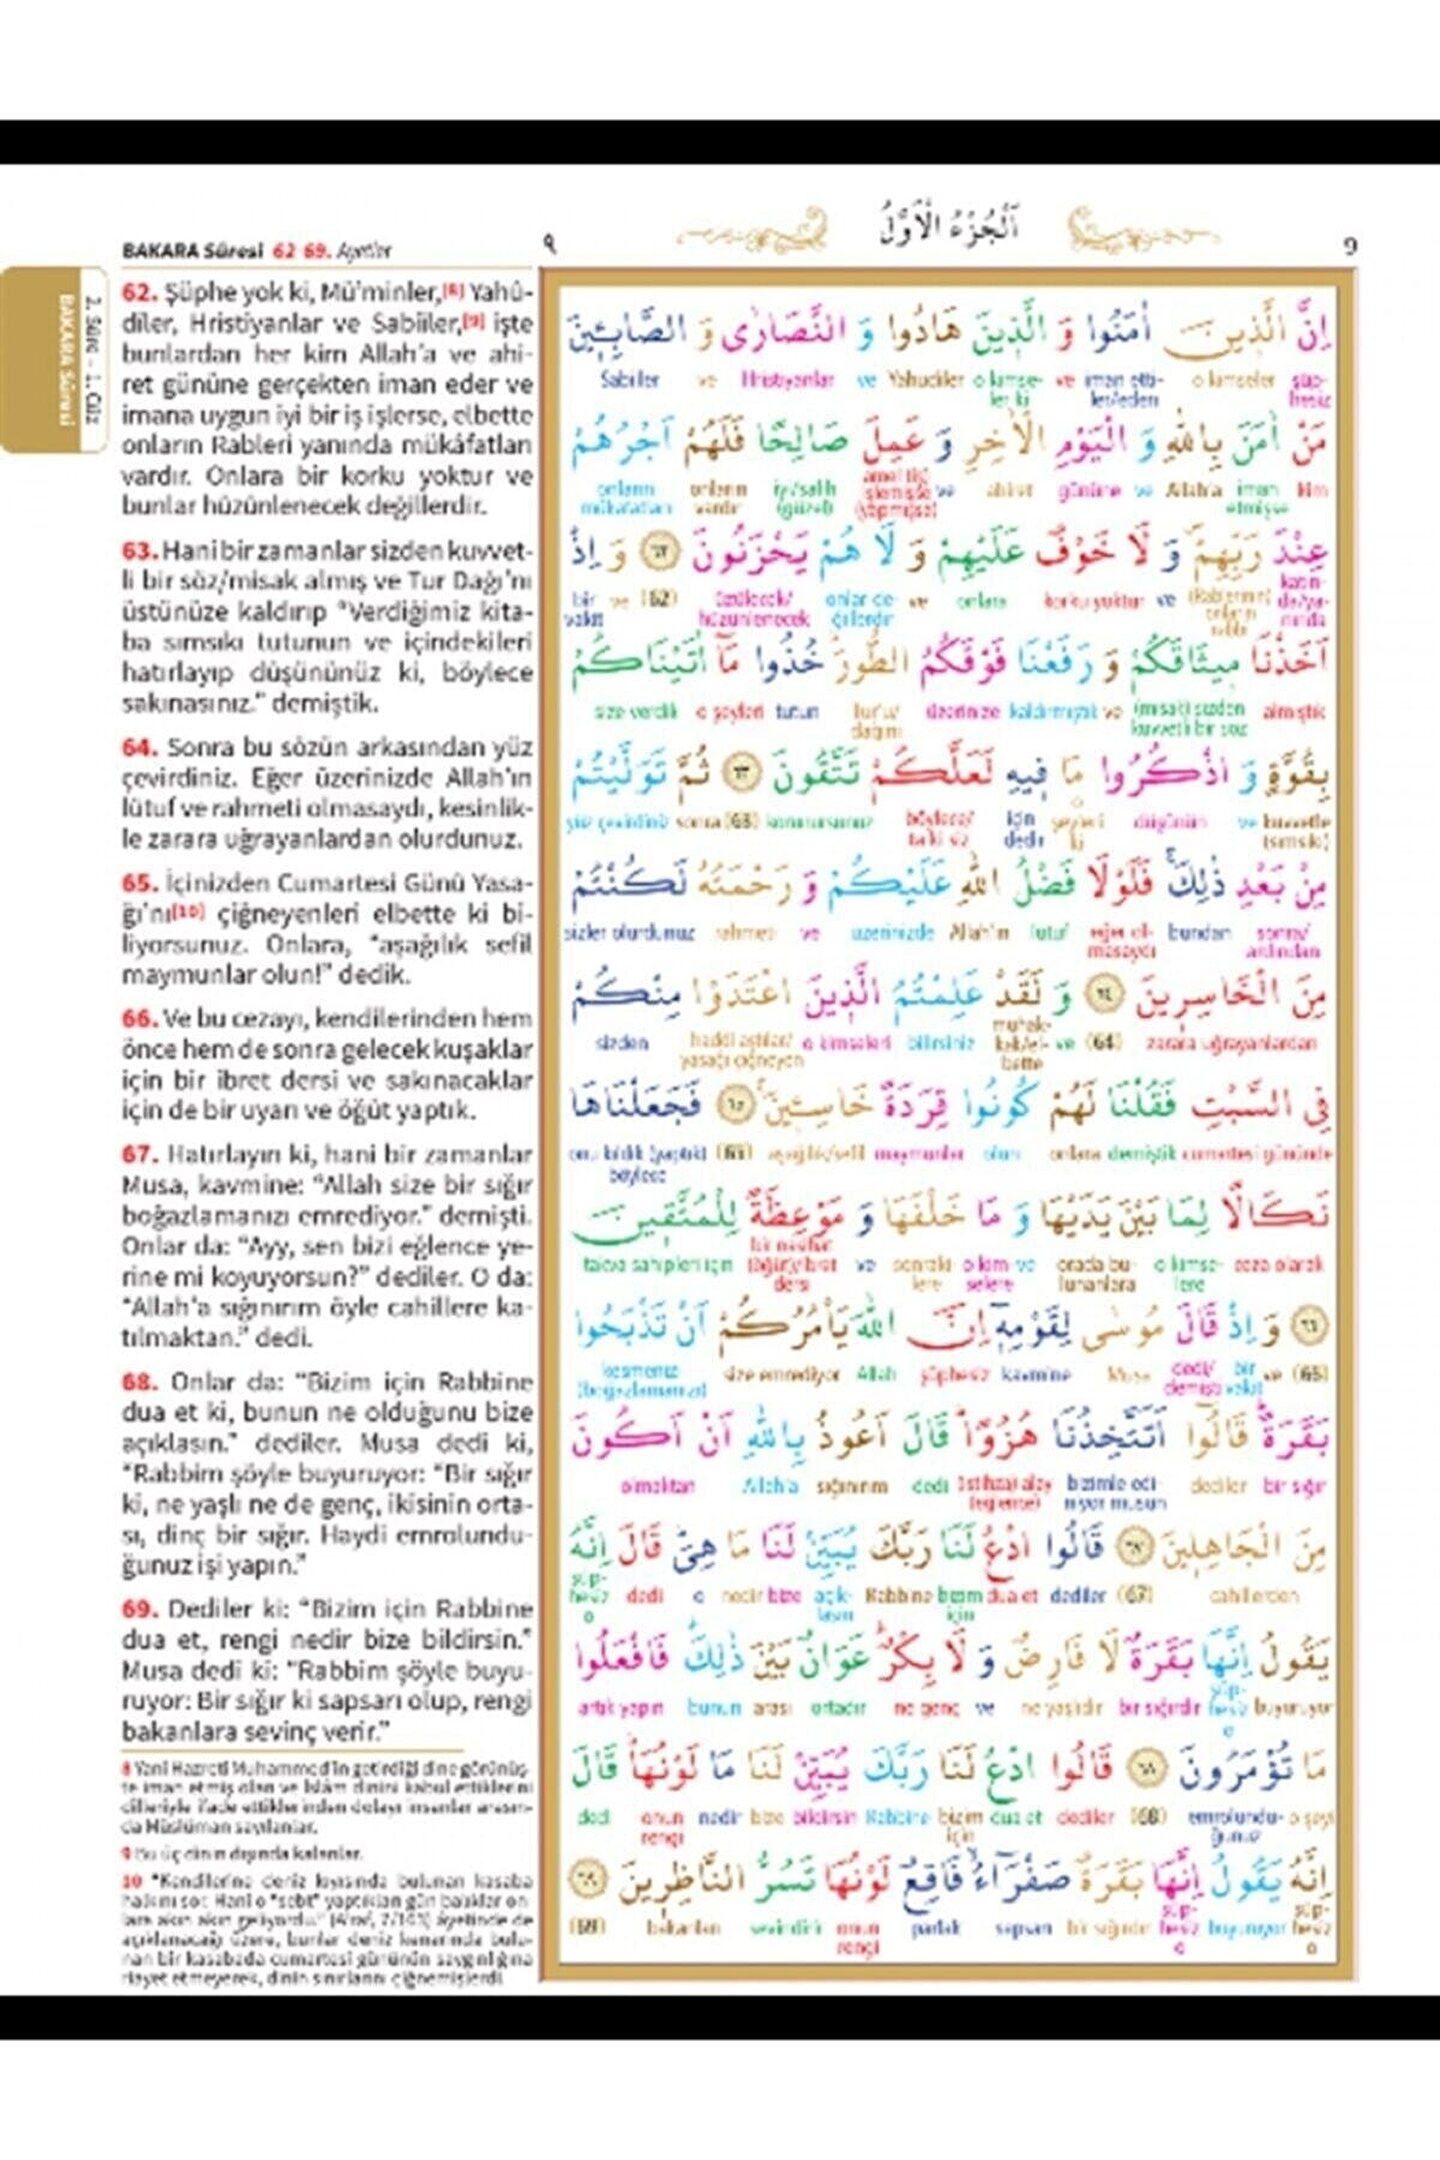 BAKARA Sûresi 62 69. Ayetler
٩
اَلْجُزْءُ الْاَوَّلُ
9
2. Sûre - 1. Cüz
BAKARA Sûresi
62. Şüphe yok ki, Mü'minler,[8] Yahû-
dîler, Hristiyanlar ve Sabiîler,[9] işte
bunlardan her kim Allah'a ve ahi-
ret gününe gerçekten iman eder ve
imana uygun iyi bir iş işlerse, elbette
onların Rableri yanında mükâfatları
vardır. Onlara bir korku yoktur ve
bunlar hüzünlenecek değillerdir.
63. Hani bir zamanlar sizden kuvvet-
li bir söz/misak almış ve Tur Dağı'nı
üstünüze kaldırıp "Verdiğimiz kita-
ba sımsıkı tutunun ve içindekileri
hatırlayıp düşününüz ki, böylece
sakınasınız." demiştik.
64. Sonra bu sözün arkasından yüz
çevirdiniz. Eğer üzerinizde Allah'ın
lütuf ve rahmeti olmasaydı, kesinlik-
le zarara uğrayanlardan olurdunuz.
65. İçinizden Cumartesi Günü Yasa-
ğı'nı[10] çiğneyenleri elbette ki bi-
liyorsunuz. Onlara, "aşağılık sefil
maymunlar olun!" dedik.
66. Ve bu cezayı, kendilerinden hem
önce hem de sonra gelecek kuşaklar
için bir ibret dersi ve sakınacaklar
için de bir uyarı ve öğüt yaptık.
67. Hatırlayın ki, hani bir zamanlar
Musa, kavmine: "Allah size bir sığır
boğazlamanızı emrediyor." demişti.
Onlar da: "Ayy, sen bizi eğlence ye-
rine mi koyuyorsun?" dediler. O da:
"Allah'a sığınırım öyle cahillere ka-
tılmaktan." dedi.
68. Onlar da: "Bizim için Rabbine
dua et ki, bunun ne olduğunu bize
açıklasın." dediler. Musa dedi ki,
"Rabbim şöyle buyuruyor: "Bir sığır
ki, ne yaşlı ne de genç, ikisinin orta-
sı, dinç bir sığır. Haydi emrolundu-
ğunuz işi yapın."
69. Dediler ki: "Bizim için Rabbine
dua et, rengi nedir bize bildirsin."
Musa dedi ki: "Rabbim şöyle buyu-
ruyor: Bir sığır ki sapsarı olup, rengi
bakanlara sevinç verir."
8 Yani Hazreti Muhammed'in getirdiği dine görünüş-
te iman etmiş olan ve İslâm dinini kabul ettiklerini
dilleriyle ifade ettiklerinden dolayı insanlar arasın-
da Müslüman sayılanlar.
9 Bu üç dinin dışında kalanlar.
10 "Kendilerine deniz kıyısında bulunan kasaba
halkını sor. Hani o "sebt" yaptıkları gün balıklar on-
lara akın akın geliyordu." (A'raf, 7/163) âyetinde de
açıklanacağı üzere, bunlar deniz kenarında bulu-
nan bir kasabada cumartesi gününün saygınlığına
riayet etmeyerek, dinin sınırlarını çiğnemişlerdi.
اِنَّ الَّذ۪ينَ اٰمَنُوا وَ الَّذ۪ينَ هَادُوا وَ النَّصَارٰى وَ الصَّابِـ۪ٔينَ
Sabiiler ve Hristiyanlar ve Yahudiler o kimse- ve iman etti- o kimseler şüp-
ler ki ler/eden hesiz
مَنْ اٰمَنَ بِاللّٰهِ وَ الْيَوْمِ الْاٰخِرِ وَ عَمِلَ صَالِحًا فَلَهُمْ اَجْرُهُمْ
onların onların iyi/salih ve ahiret gününe ve Allah'a iman kim
mükafatları vardır (güzel) etmişse
عِنْدَ رَبِّهِمْ وَ لَا خَوْفٌ عَلَيْهِمْ وَ لَا هُمْ يَحْزَنُونَ ٦٢ وَ اِذْ
bir ve (62) üzülecek/ onlar de- ve onlara korku yoktur ve
vakit hüzünlenecek ğillerdir
اَخَذْنَا م۪يثَاقَكُمْ وَ رَفَعْنَا فَوْقَكُمُ الطُّورَ خُذُوا مَٓا اٰتَيْنَاكُمْ
size verdik o şeyleri tutun Tur'u/ üzerinize kaldırmıştık ve (misak) sizden almıştık
dağını kuvvetli bir söz
بِقُوَّةٍ وَ اذْكُرُوا مَا ف۪يهِ لَعَلَّكُمْ تَتَّقُونَ ٦٣ ثُمَّ تَوَلَّيْتُمْ
yüz çevirdiniz sonra (63) korunursunuz böylece/ için şeyleri düşünün ve kuvvetle
ta ki siz dedir ki (sımsıkı)
مِنْ بَعْدِ ذٰلِكَ فَلَوْلَا فَضْلُ اللّٰهِ عَلَيْكُمْ وَ رَحْمَتُهُ لَكُنْتُمْ
sizler olurdunuz rahmeti ve üzerinizde Allah'ın lütuf eğer ol- bundan sonra/
masaydı ardından
مِنَ الْخَاسِر۪ينَ ٦٤ وَ لَقَدْ عَلِمْتُمُ الَّذ۪ينَ اعْتَدَوْا مِنْكُمْ
sizden haddi aştılar/ o kimseleri bilirsiniz muhak- ve (64) zarara uğrayanlardan
yasağı çiğneyen kak/el-
bette
فِي السَّبْتِ فَقُلْنَا لَهُمْ كُونُوا قِرَدَةً خَاسِـ۪ٔينَ ٦٥ فَجَعَلْنَاهَا
onu kıldık (yaptık) (65) aşağılık/sefil maymunlar olun onlara demiştik cumartesi gününde
böylece
نَكَالًا لِمَا بَيْنَ يَدَيْهَا وَ مَا خَلْفَهَا وَ مَوْعِظَةً لِلْمُتَّق۪ينَ
takva sahipleri için ve sonraki- o kim- ve orada bu- o kimse- ceza olarak
dersi lere selere lunanlara lere
٦٦ وَ اِذْ قَالَ مُوسٰى لِقَوْمِه۪ٓ اِنَّ اللّٰهَ يَأْمُرُكُمْ اَنْ تَذْبَحُوا
kesmenizi size emrediyor Allah şüphesiz kavmine Musa dedi/ bir ve (66)
(boğazlamanızı) demişti vakit
بَقَرَةً قَالُٓوا اَتَتَّخِذُنَا هُزُوًا قَالَ اَعُوذُ بِاللّٰهِ اَنْ اَكُونَ
olmaktan Allah'a sığınırım dedi (istihza) alay bizimle edi- dediler bir sığır
(eğlence) niyor musun
مِنَ الْجَاهِل۪ينَ ٦٧ قَالُوا ادْعُ لَنَا رَبَّكَ يُبَيِّنْ لَنَا مَا هِيَ قَالَ اِنَّهُ
şüp- dedi o nedir bize açık- Rabbine bizim dua et dediler (67) cahillerden
hesiz lasın için
o
يَقُولُ اِنَّهَا بَقَرَةٌ لَا فَارِضٌ وَ لَا بِكْرٌ عَوَانٌ بَيْنَ ذٰلِكَ فَافْعَلُوا
artık yapın bunun arası ortadır ne genç ve ne yaşlıdır bir sığırdır şüp- buyuruyor
hesiz
o
مَا تُؤْمَرُونَ ٦٨ قَالُوا ادْعُ لَنَا رَبَّكَ يُبَيِّنْ لَنَا مَا لَوْنُهَا قَالَ
dedi onun nedir bize bildirsin Rabbine bizim dua et dediler (68) emrolundu- o şeyi
rengi için ğunuz
اِنَّهُ يَقُولُ اِنَّهَا بَقَرَةٌ صَفْرَٓاءُ فَاقِعٌ لَوْنُهَا تَسُرُّ النَّاظِر۪ينَ ٦٩
(69) bakanları sevindirir onun parlak sapsarı bir sığırdır şüp- buyuruyor şüp-
rengi hesiz hesiz
o o